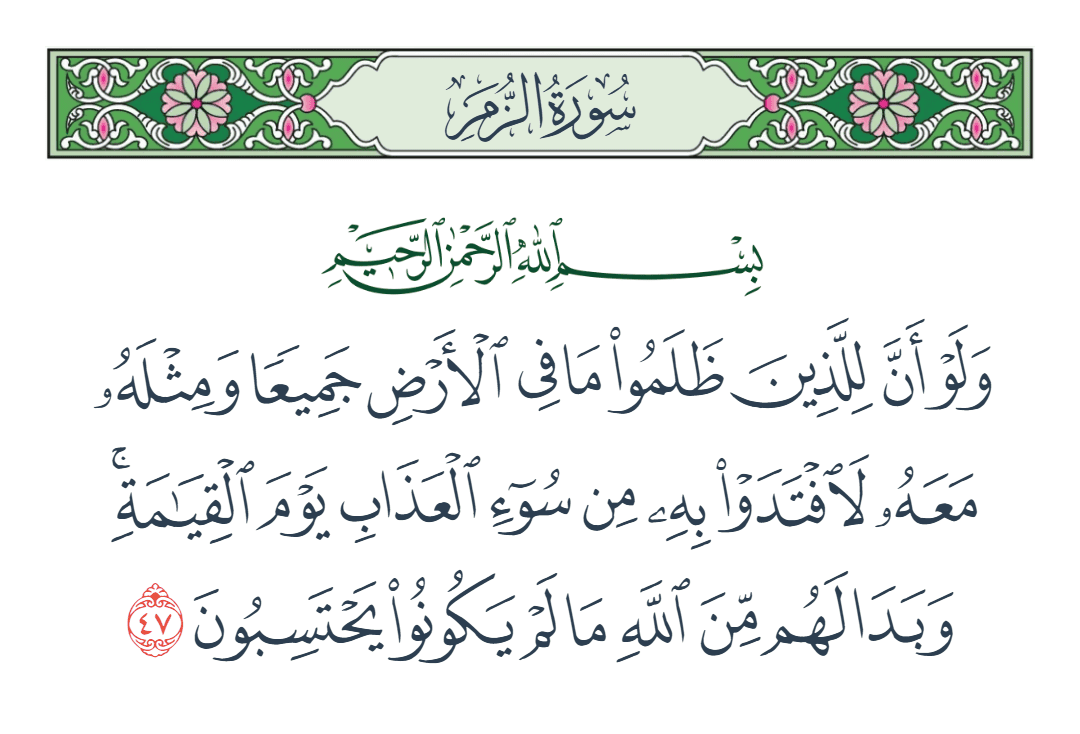 سُورَةُ الزُّمَرِ
بِسْمِ ٱللَّهِ ٱلرَّحْمَٰنِ ٱلرَّحِيمِ
وَلَوْ أَنَّ لِلَّذِينَ ظَلَمُوا۟ مَا فِى ٱلْأَرْضِ جَمِيعًا وَمِثْلَهُۥ
مَعَهُۥ لَٱفْتَدَوْا۟ بِهِۦ مِن سُوٓءِ ٱلْعَذَابِ يَوْمَ ٱلْقِيَـٰمَةِ ۚ
وَبَدَا لَهُم مِّنَ ٱللَّهِ مَا لَمْ يَكُونُوا۟ يَحْتَسِبُونَ ٤٧